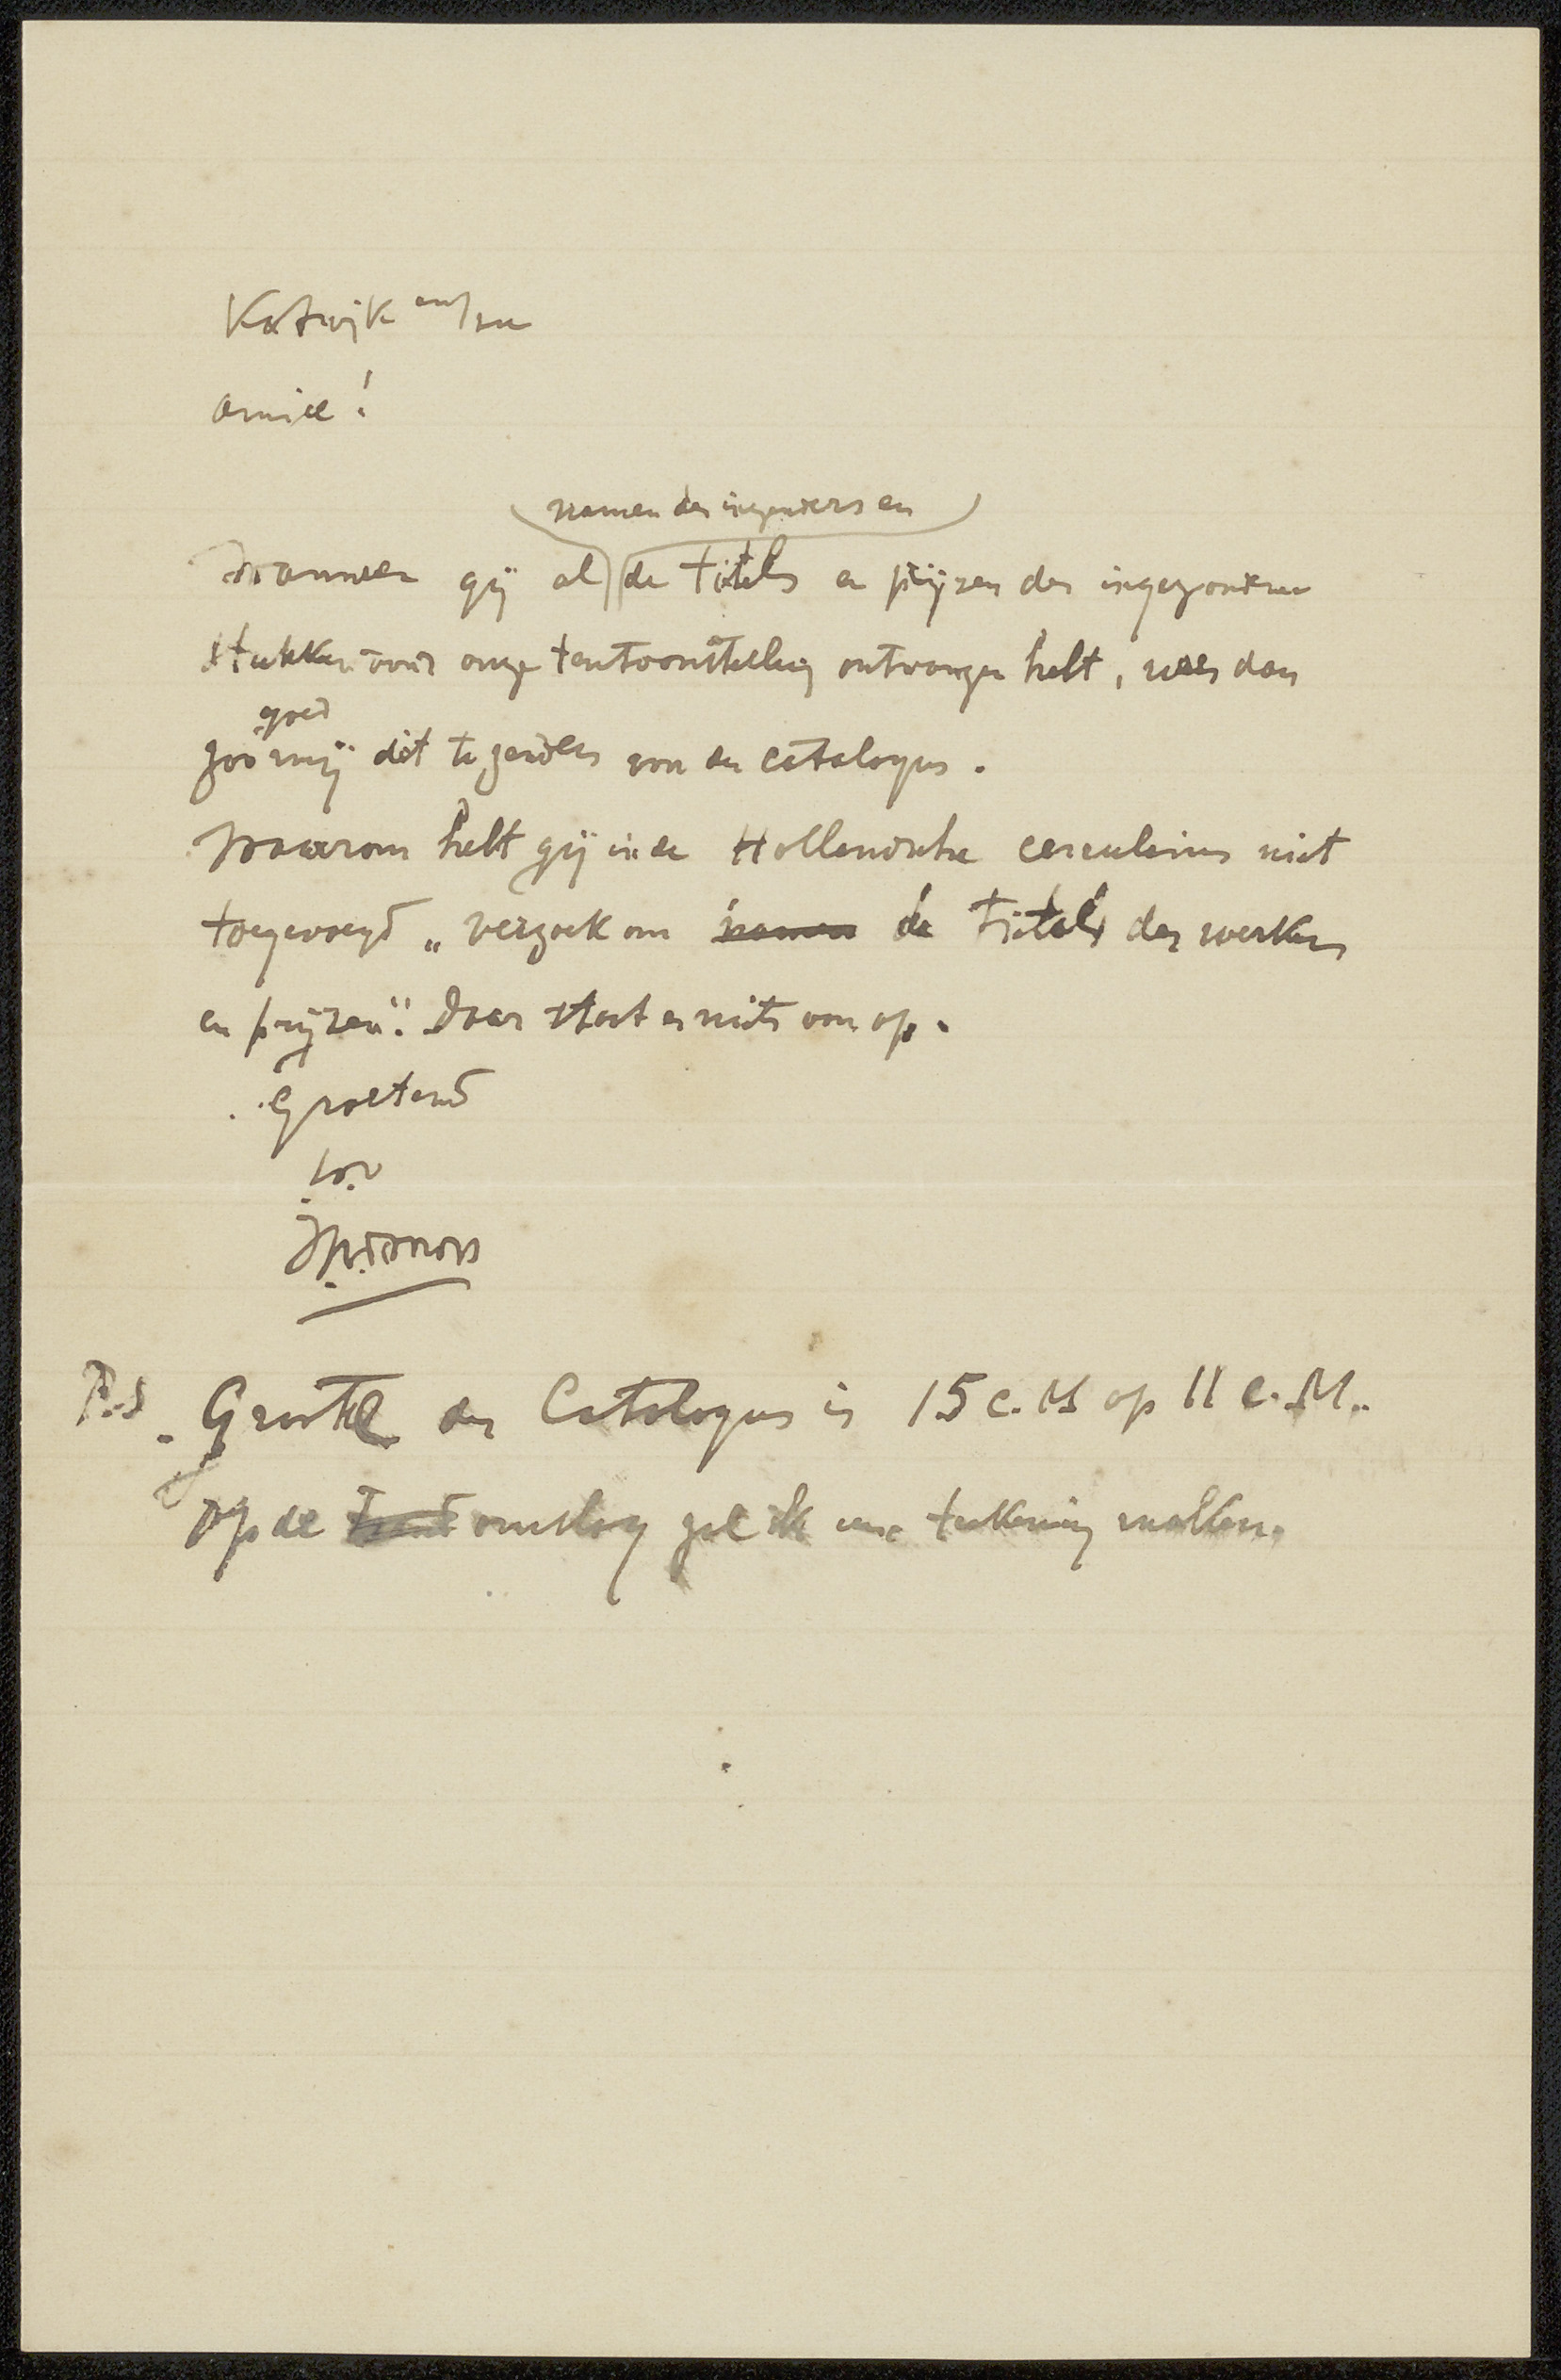 Katwijk an/zee
Amice!
namen der inzenders en
Wanneer gij al de titels en prijzen der ingezonden
stukken voor onze tentoonstelling ontvangen hebt, wees dan
goed
zoo mij dit te zenden voor den catalogus.
Waarom hebt gij in de Hollandsche circulaires niet
toegevoegd „verzoek om namen de titels der werken
en prijzen". Daar staat er niets van op.
Groetend
t.v.
P.S. Grootte der Catalogus is 15 c.M op 11 c.M.
Op de omslag zal ik eene teekening maken.